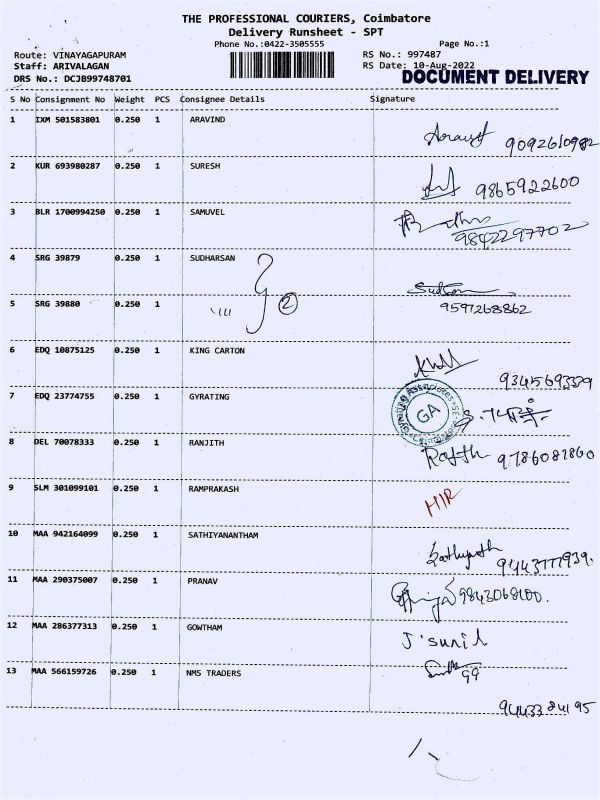 THE PROFESSIONAL COURIERS, Coimbatore
Delivery Runsheet - SPT
Phone No.:0422-3505555
Page No.:1
Route: VINAYAGAPURAM
RS No.: 997487
Staff: ARIVALAGAN
RS Date: 10-Aug-2022
DRS No.: DCJB99748701
DOCUMENT DELIVERY
S No Consignment No Weight PCS Consignee Details Signature
1 IXM 501583801 0.250 1 ARAVIND
9092610982
2 KUR 693980287 0.250 1 SURESH
9865922600
3 BLR 1700994250 0.250 1 SAMUVEL
9842297702
4 SRG 39879 0.250 1 SUDHARSAN
5 SRG 39880 0.250 1 2
9597268862
6 EDQ 10875125 0.250 1 KING CARTON
9345693379
7 EDQ 23774755 0.250 1 GYRATING
GA
8 DEL 70078333 0.250 1 RANJITH
9786081860
9 SLM 301099101 0.250 1 RAMPRAKASH
10 MAA 942164099 0.250 1 SATHIYANANTHAM
11 MAA 290375007 0.250 1 PRANAV
9843068100.
12 MAA 286377313 0.250 1 GOWTHAM
J'sunil
13 MAA 566159726 0.250 1 NMS TRADERS